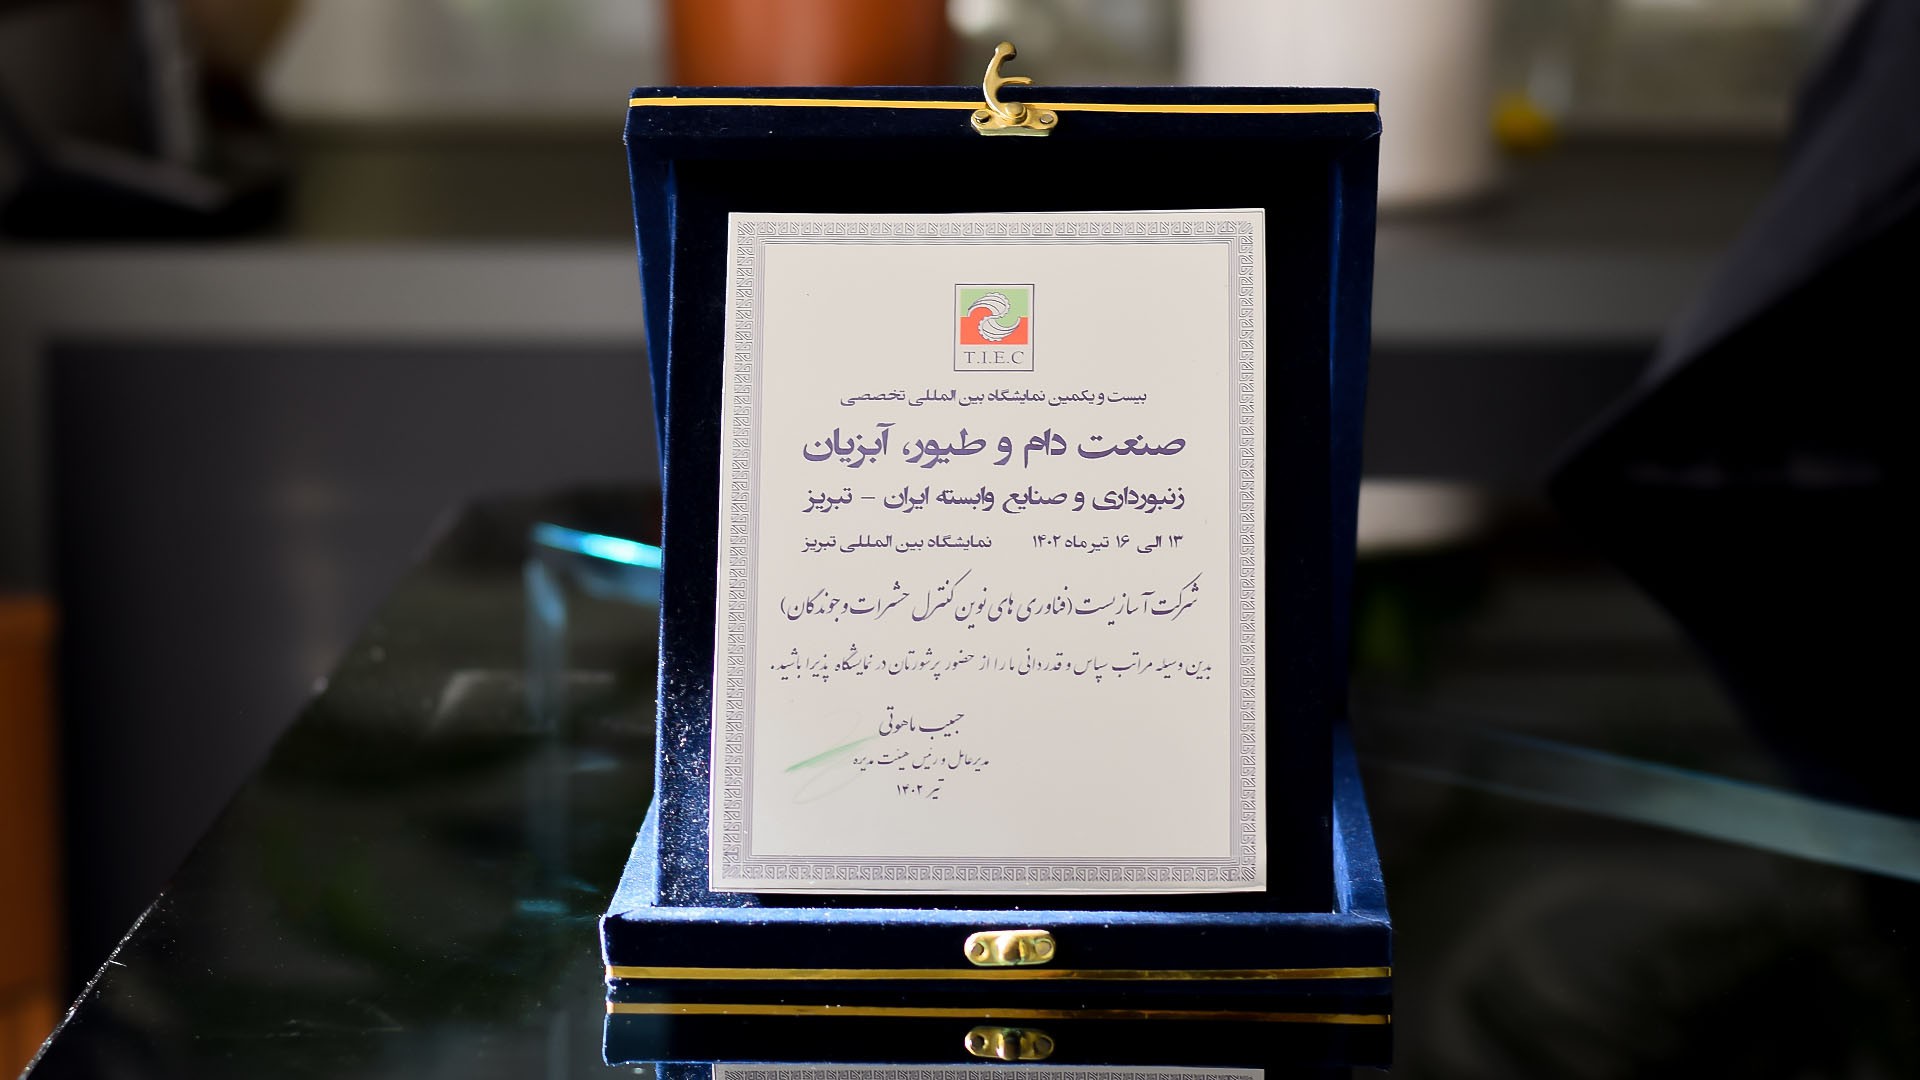 T.I.E.C
بیست و یکمین نمایشگاه بین المللی تخصصی
صنعت دام و طیور، آبزیان
زنبورداری و صنایع وابسته ایران - تبریز
۱۳ الی ۱۶ تیر ماه ۱۴۰۲ نمایشگاه بین المللی تبریز
شرکت آسازیست (فناوری های نوین کنترل حشرات و جوندگان)
بدین وسیله مراتب سپاس و قدردانی ما را از حضور پرشورتان در نمایشگاه پذیرا باشید.
حبیب ماهوتی
مدیرعامل و رئیس هیئت مدیره
تیر ۱۴۰۲